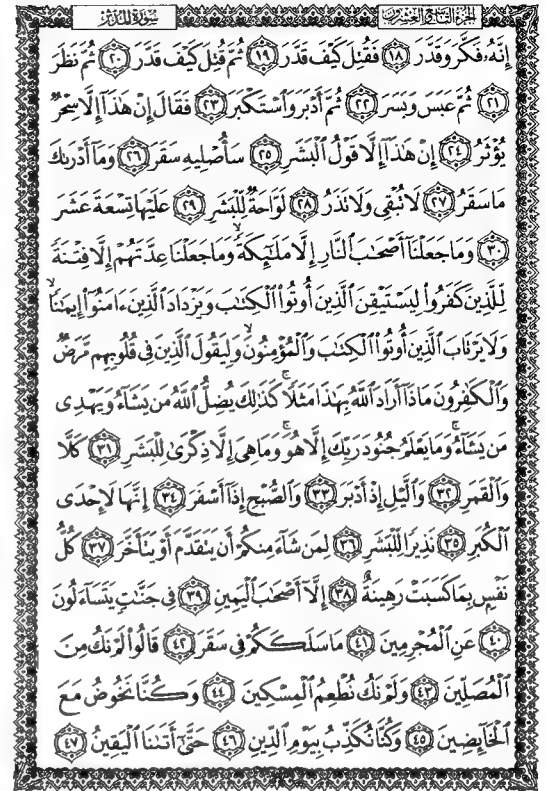 الجزء التاسع والعشرون
سورة المدثر
إِنَّهُۥ فَكَّرَ وَقَدَّرَ ١٨ فَقُتِلَ كَيْفَ قَدَّرَ ١٩ ثُمَّ قُتِلَ كَيْفَ قَدَّرَ ٢٠ ثُمَّ نَظَرَ
٢١ ثُمَّ عَبَسَ وَبَسَرَ ٢٢ ثُمَّ أَدْبَرَ وَٱسْتَكْبَرَ ٢٣ فَقَالَ إِنْ هَٰذَآ إِلَّا سِحْرٌ
يُؤْثَرُ ٢٤ إِنْ هَٰذَآ إِلَّا قَوْلُ ٱلْبَشَرِ ٢٥ سَأُصْلِيهِ سَقَرَ ٢٦ وَمَآ أَدْرَىٰكَ
مَا سَقَرُ ٢٧ لَا تُبْقِى وَلَا تَذَرُ ٢٨ لَوَّاحَةٌ لِّلْبَشَرِ ٢٩ عَلَيْهَا تِسْعَةَ عَشَرَ
٣٠ وَمَا جَعَلْنَآ أَصْحَٰبَ ٱلنَّارِ إِلَّا مَلَٰٓئِكَةً ۙ وَمَا جَعَلْنَا عِدَّتَهُمْ إِلَّا فِتْنَةً
لِّلَّذِينَ كَفَرُوا۟ لِيَسْتَيْقِنَ ٱلَّذِينَ أُوتُوا۟ ٱلْكِتَٰبَ وَيَزْدَادَ ٱلَّذِينَ ءَامَنُوٓا۟ إِيمَٰنًا ۙ
وَلَا يَرْتَابَ ٱلَّذِينَ أُوتُوا۟ ٱلْكِتَٰبَ وَٱلْمُؤْمِنُونَ ۙ وَلِيَقُولَ ٱلَّذِينَ فِى قُلُوبِهِم مَّرَضٌ
وَٱلْكَٰفِرُونَ مَاذَآ أَرَادَ ٱللَّهُ بِهَٰذَا مَثَلًا ۚ كَذَٰلِكَ يُضِلُّ ٱللَّهُ مَن يَشَآءُ وَيَهْدِى
مَن يَشَآءُ ۚ وَمَا يَعْلَمُ جُنُودَ رَبِّكَ إِلَّا هُوَ ۚ وَمَا هِىَ إِلَّا ذِكْرَىٰ لِلْبَشَرِ ٣١ كَلَّا
وَٱلْقَمَرِ ٣٢ وَٱلَّيْلِ إِذْ أَدْبَرَ ٣٣ وَٱلصُّبْحِ إِذَآ أَسْفَرَ ٣٤ إِنَّهَا لَإِحْدَى
ٱلْكُبَرِ ٣٥ نَذِيرًا لِّلْبَشَرِ ٣٦ لِمَن شَآءَ مِنكُمْ أَن يَتَقَدَّمَ أَوْ يَتَأَخَّرَ ٣٧ كُلُّ
نَفْسٍۭ بِمَا كَسَبَتْ رَهِينَةٌ ٣٨ إِلَّآ أَصْحَٰبَ ٱلْيَمِينِ ٣٩ فِى جَنَّٰتٍ يَتَسَآءَلُونَ
٤٠ عَنِ ٱلْمُجْرِمِينَ ٤١ مَا سَلَكَكُمْ فِى سَقَرَ ٤٢ قَالُوا۟ لَمْ نَكُ مِنَ
ٱلْمُصَلِّينَ ٤٣ وَلَمْ نَكُ نُطْعِمُ ٱلْمِسْكِينَ ٤٤ وَكُنَّا نَخُوضُ مَعَ
ٱلْخَآئِضِينَ ٤٥ وَكُنَّا نُكَذِّبُ بِيَوْمِ ٱلدِّينِ ٤٦ حَتَّىٰٓ أَتَىٰنَا ٱلْيَقِينُ ٤٧